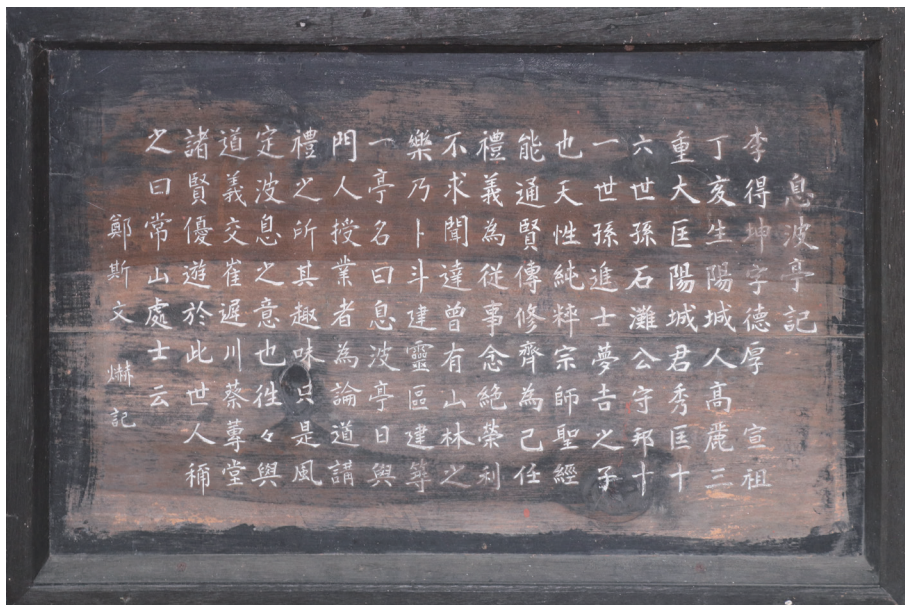 息波亭記
李得坤字德厚 宣祖
丁亥生陽城人高麗三
重大匡陽城君秀匡十
六世孫石灘公守邦十
一世孫進士夢吉之子
也天性純粹宗師聖經
能通賢傳修齊為己任
禮義為從事念絶榮利
不求聞達曾有山林之
樂乃卜斗建靈區建築
一亭名曰息波亭日與
門人授業者為論道講
禮之所其趣味只是風
定波息之意也徃々與
道義交崔遲川蔡蓴堂
諸賢優遊於此世人稱
之曰常山處士云
鄭斯文 爀記